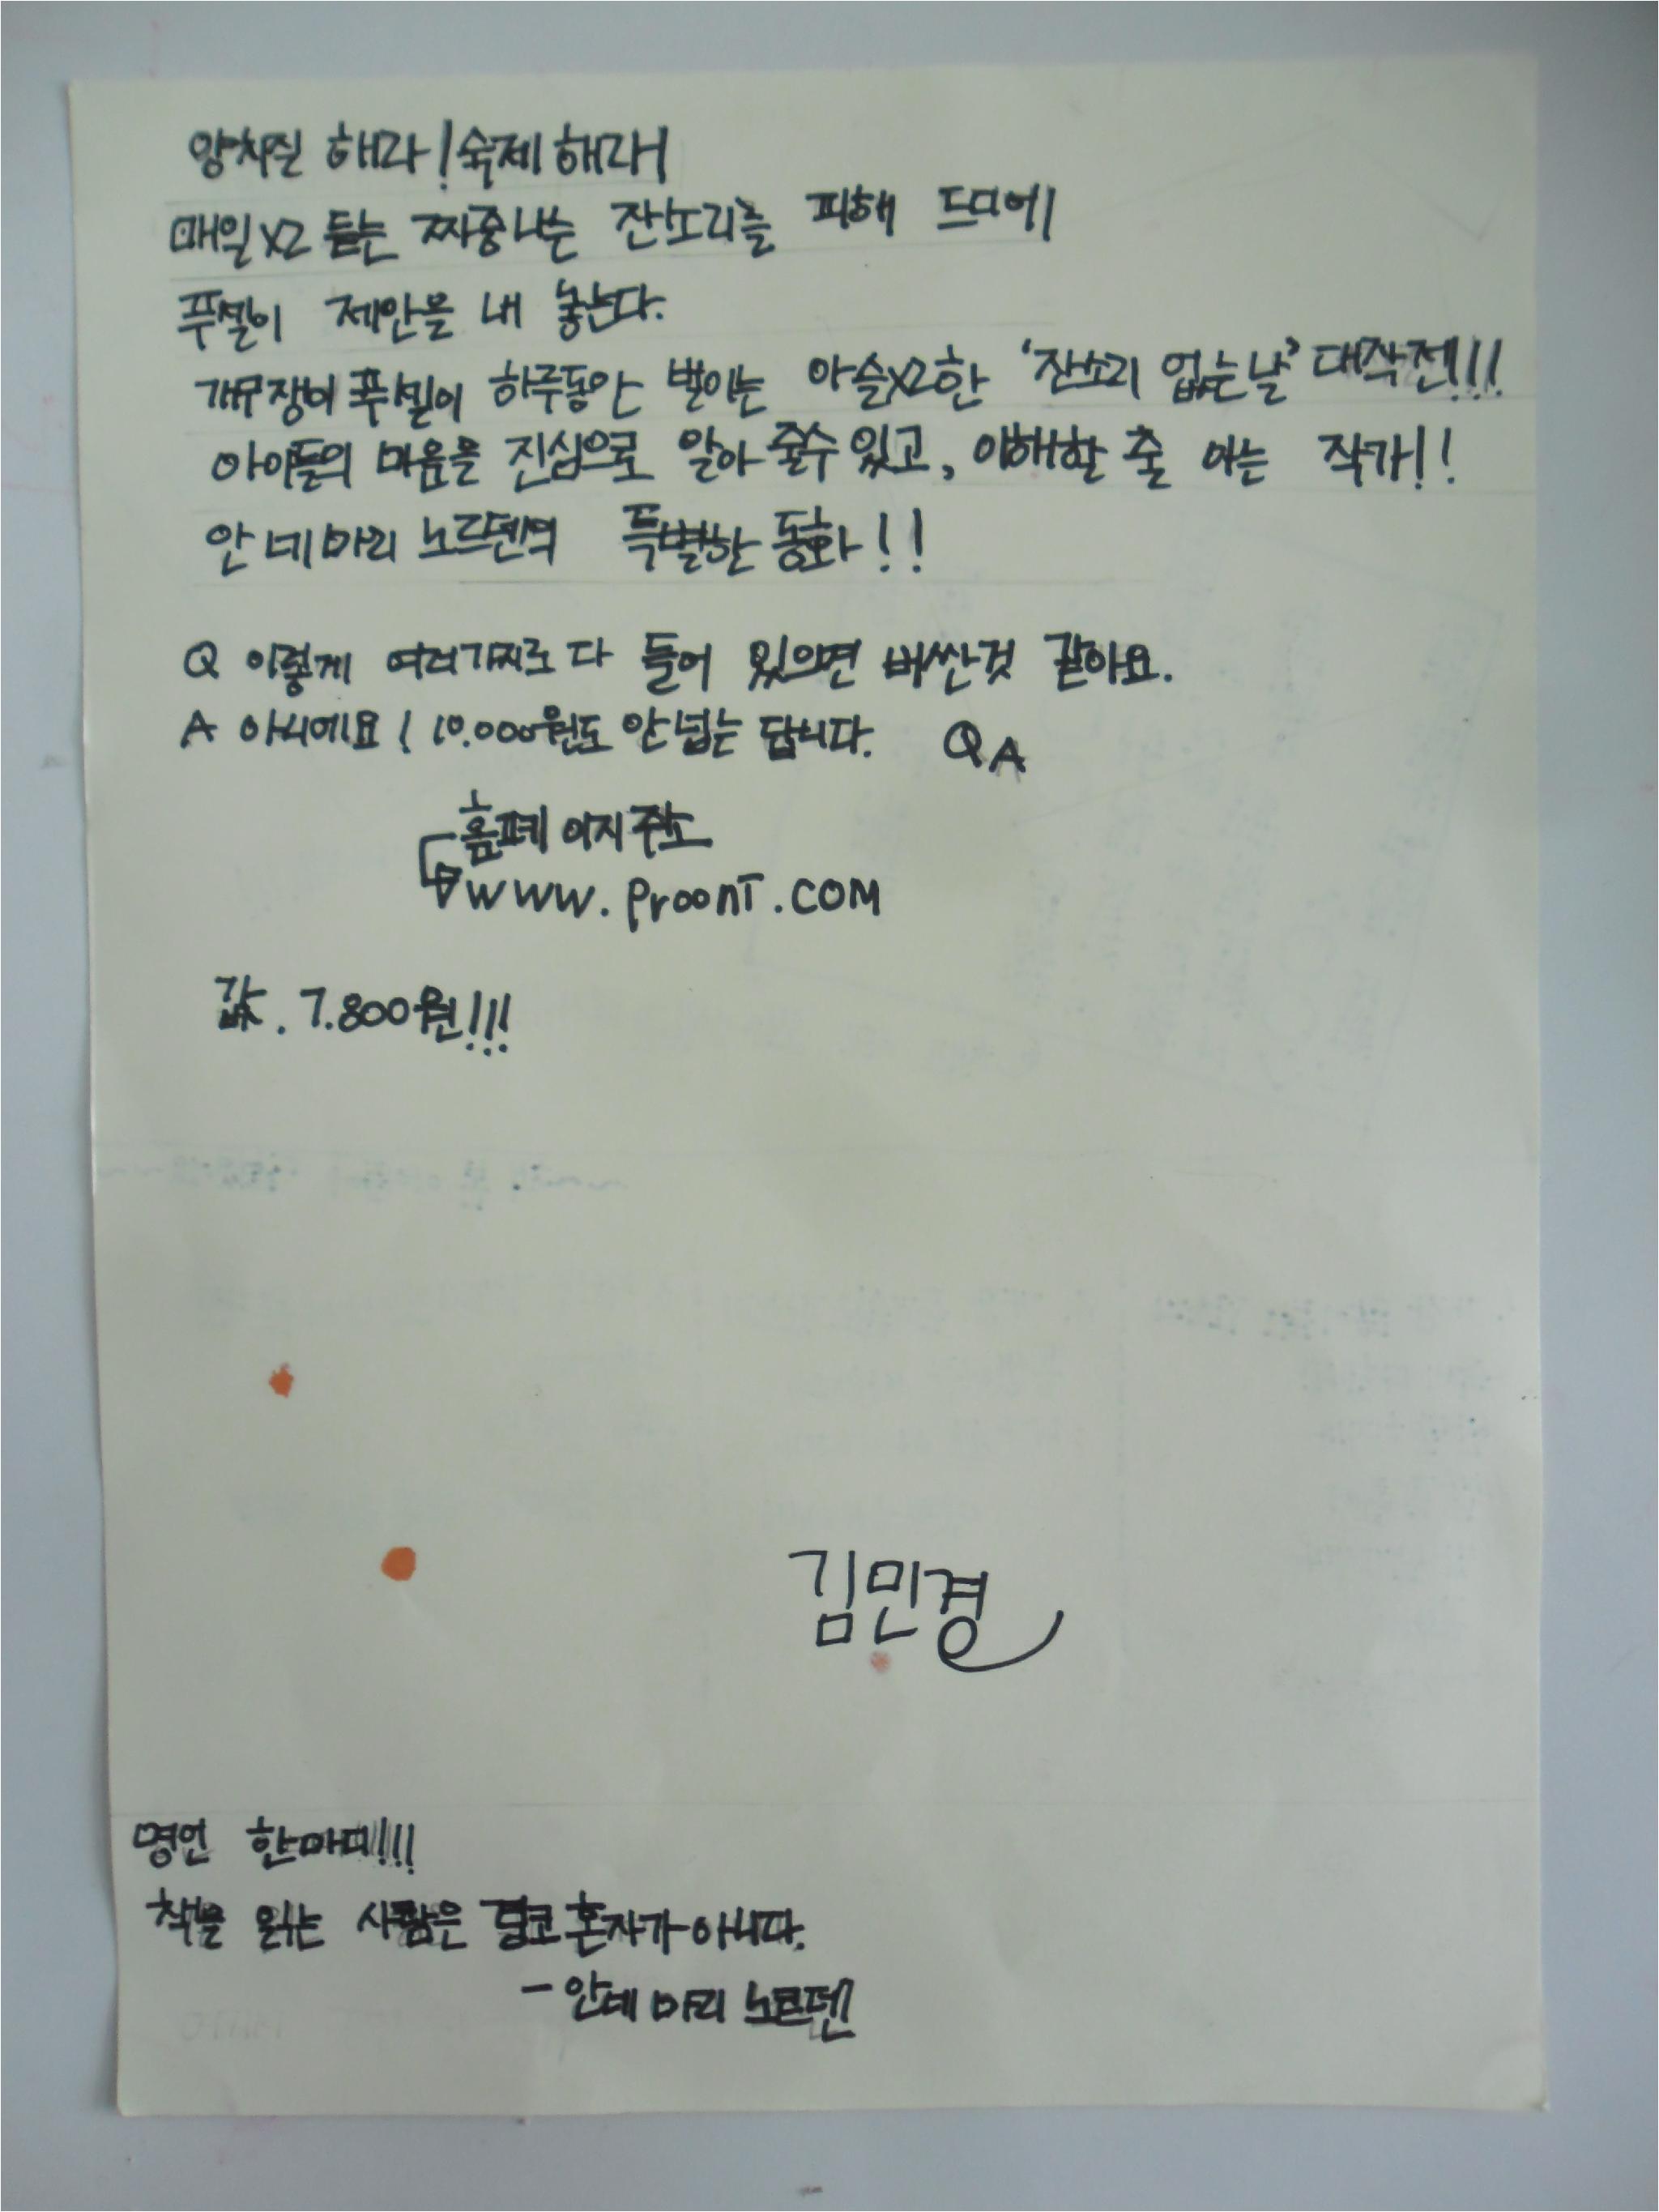 양치질 해라! 숙제 해라!
매일x2 듣는 짜증나는 잔소리를 피해 드디어
푸셀이 제안을 내 놓는다.
개구쟁이 푸셀이 하루동안 벌이는 아슬x2한 '잔소리 없는 날' 대작전!!!
아이들의 마음을 진심으로 알아 줄수 있고, 이해할 줄 아는 작가!!
안네 마리 노르덴의 특별한 동화!!
Q 이렇게 여러가지로 다 들어 있으면 비싼것 같아요.
A 아니에요! 10.000원도 안넘는 답니다. QA
홈페이지 주소
www.proonT.COM
값. 7.800원!!!
김민경
명언 한마디!!!
책을 읽는 사람은 결코 혼자가 아니다.
- 안네 마리 노르덴